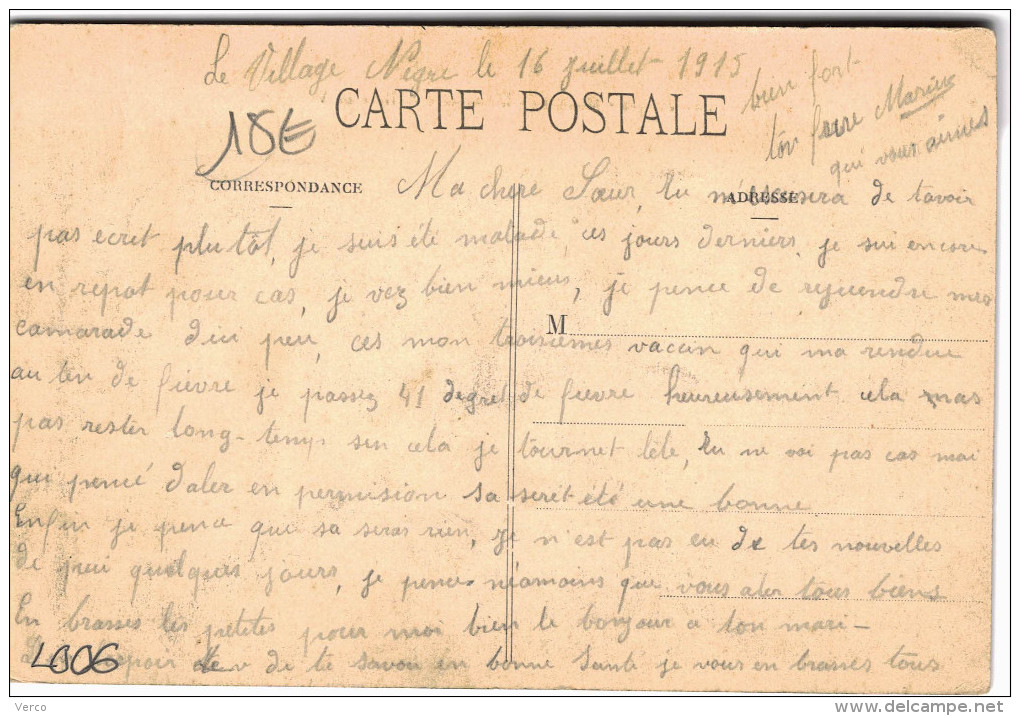 Le Village Nègre le 16 juillet 1915
CARTE POSTALE
18E
CORRESPONDANCE
ADRESSE
Ma chere Sœur, tu m'éxcusera de tavoir
pas ecrit plutôt, je suis été malade, ces jours derniers, je sui encore
en repot pour cas, je vez bien mieux, je pence de rejuendre mes
M
camarade d'ici peu, ces mon troisiemes vacun qui ma rendue
au ten de fievre je passez 41 degret de fievre heureusement cela mas
pas rester long-temps sen cela je tournet lete, tu ne voi pas cas moi
qui pencé d'aler en permision sa seret été une bonne
Enfin je pence que sa seras rien, je n'est pas eu de tes nouvelles
de puit quelques jours, je pence néamoins que vous aler tous biens
En brasses les petites pour moi bien le bonjour a ton mari -
espoir de te savoir en bonne Sante je vous en brasses tous
bien fort
ton frere Marius
qui vous aimes
4006
Verco
© delcampe.net